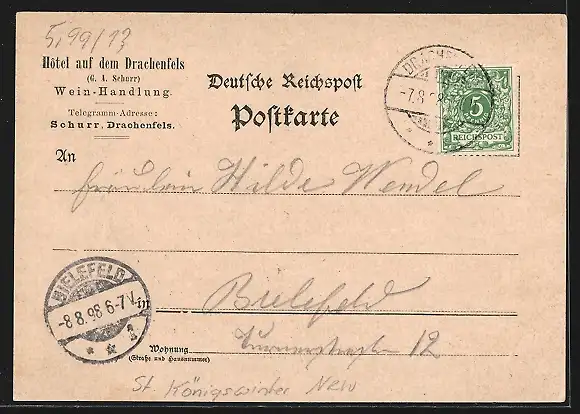 5,99/13
Hôtel auf dem Drachenfels
(G. A. Schurr)
Wein-Handlung.
Telegramm-Adresse:
Schurr, Drachenfels.
Deutsche Reichspost
Postkarte
DRACHENFELS
-7.8.98
5
REICHSPOST
An
Fräulein Hilde Wendel
BIELEFELD
-8.8.98 6-7V.
1
in Bielefeld
Wohnung
(Straße und Hausnummer)
Turnerstraße 12
St. Königswinter New